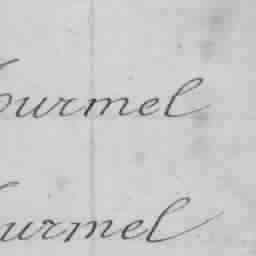 ourmel
urmel